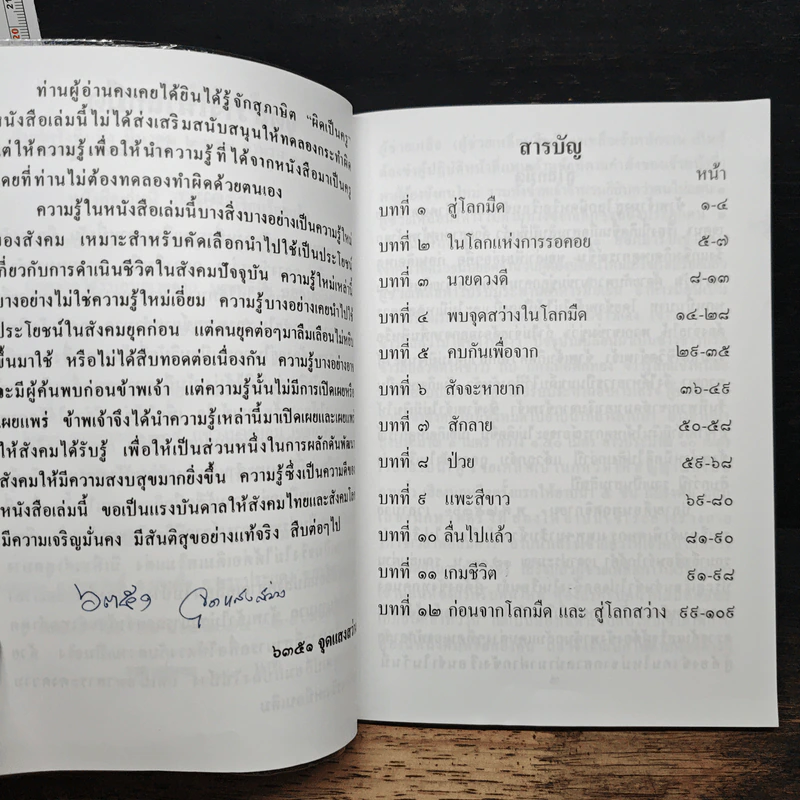 ท่านผู้อ่านคงเคยได้ยินได้รู้จักสุภาษิต "ผิดเป็นครู"
หนังสือเล่มนี้ไม่ได้ส่งเสริมสนับสนุนให้ทดลองกระทำผิด
แต่ให้ความรู้เพื่อให้นำความรู้ที่ได้จากหนังสือมาเป็นครู
โดยที่ท่านไม่ต้องทดลองทำผิดด้วยตนเอง
ความรู้ในหนังสือเล่มนี้บางสิ่งบางอย่างเป็นความรู้ใหม่
ของสังคม เหมาะสำหรับคัดเลือกนำไปใช้เป็นประโยชน์
เกี่ยวกับการดำเนินชีวิตในสังคมปัจจุบัน ความรู้ใหม่เหล่านี้
บางอย่างไม่ใช่ความรู้ใหม่เอี่ยม ความรู้บางอย่างเคยนำไปใช้
ประโยชน์ในสังคมยุคก่อน แต่คนยุคต่อๆมาลืมเลือนไม่หยิบ
ขึ้นมาใช้ หรือไม่ได้สืบทอดต่อเนื่องกัน ความรู้บางอย่างอาจ
จะมีผู้ค้นพบก่อนข้าพเจ้า แต่ความรู้นั้นไม่มีการเปิดเผยหรือ
เผยแพร่ ข้าพเจ้าจึงได้นำความรู้เหล่านี้มาเปิดเผยและเผยแพร่
ให้สังคมได้รับรู้ เพื่อให้เป็นส่วนหนึ่งในการผลักดันพัฒนา
สังคมให้มีความสงบสุขมากยิ่งขึ้น ความรู้ซึ่งเป็นความดีของ
หนังสือเล่มนี้ ขอเป็นแรงบันดาลให้สังคมไทยและสังคมโลก
มีความเจริญมั่นคง มีสันติสุขอย่างแท้จริง สืบต่อๆไป
๖๓๕๑ จุดแสงสว่าง
๖๓๕๑ จุดแสงสว่าง
สารบัญ
หน้า
บทที่ ๑ สู่โลกมืด ๑-๔
บทที่ ๒ ในโลกแห่งการรอคอย ๕-๗
บทที่ ๓ นายดวงดี ๘-๑๓
บทที่ ๔ พบจุดสว่างในโลกมืด ๑๔-๒๘
บทที่ ๕ คบกันเพื่อจาก ๒๙-๓๕
บทที่ ๖ สัจจะหายาก ๓๖-๔๙
บทที่ ๗ สักลาย ๕๐-๕๘
บทที่ ๘ ป่วย ๕๙-๖๘
บทที่ ๙ แพะสีขาว ๖๙-๘๐
บทที่ ๑๐ ลื่นไปแล้ว ๘๑-๙๐
บทที่ ๑๑ เกมชีวิต ๙๑-๙๘
บทที่ ๑๒ ก่อนจากโลกมืด และ สู่โลกสว่าง ๙๙-๑๐๙
20